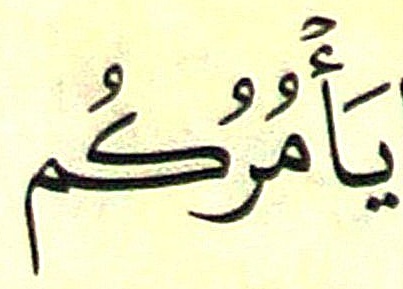 يَأْمُرُكُم